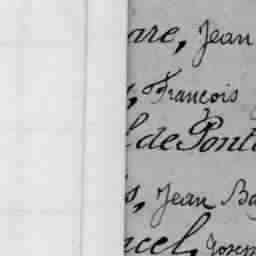 are, Jean
, François
de Pont
s, Jean Ba
ncel, Josep